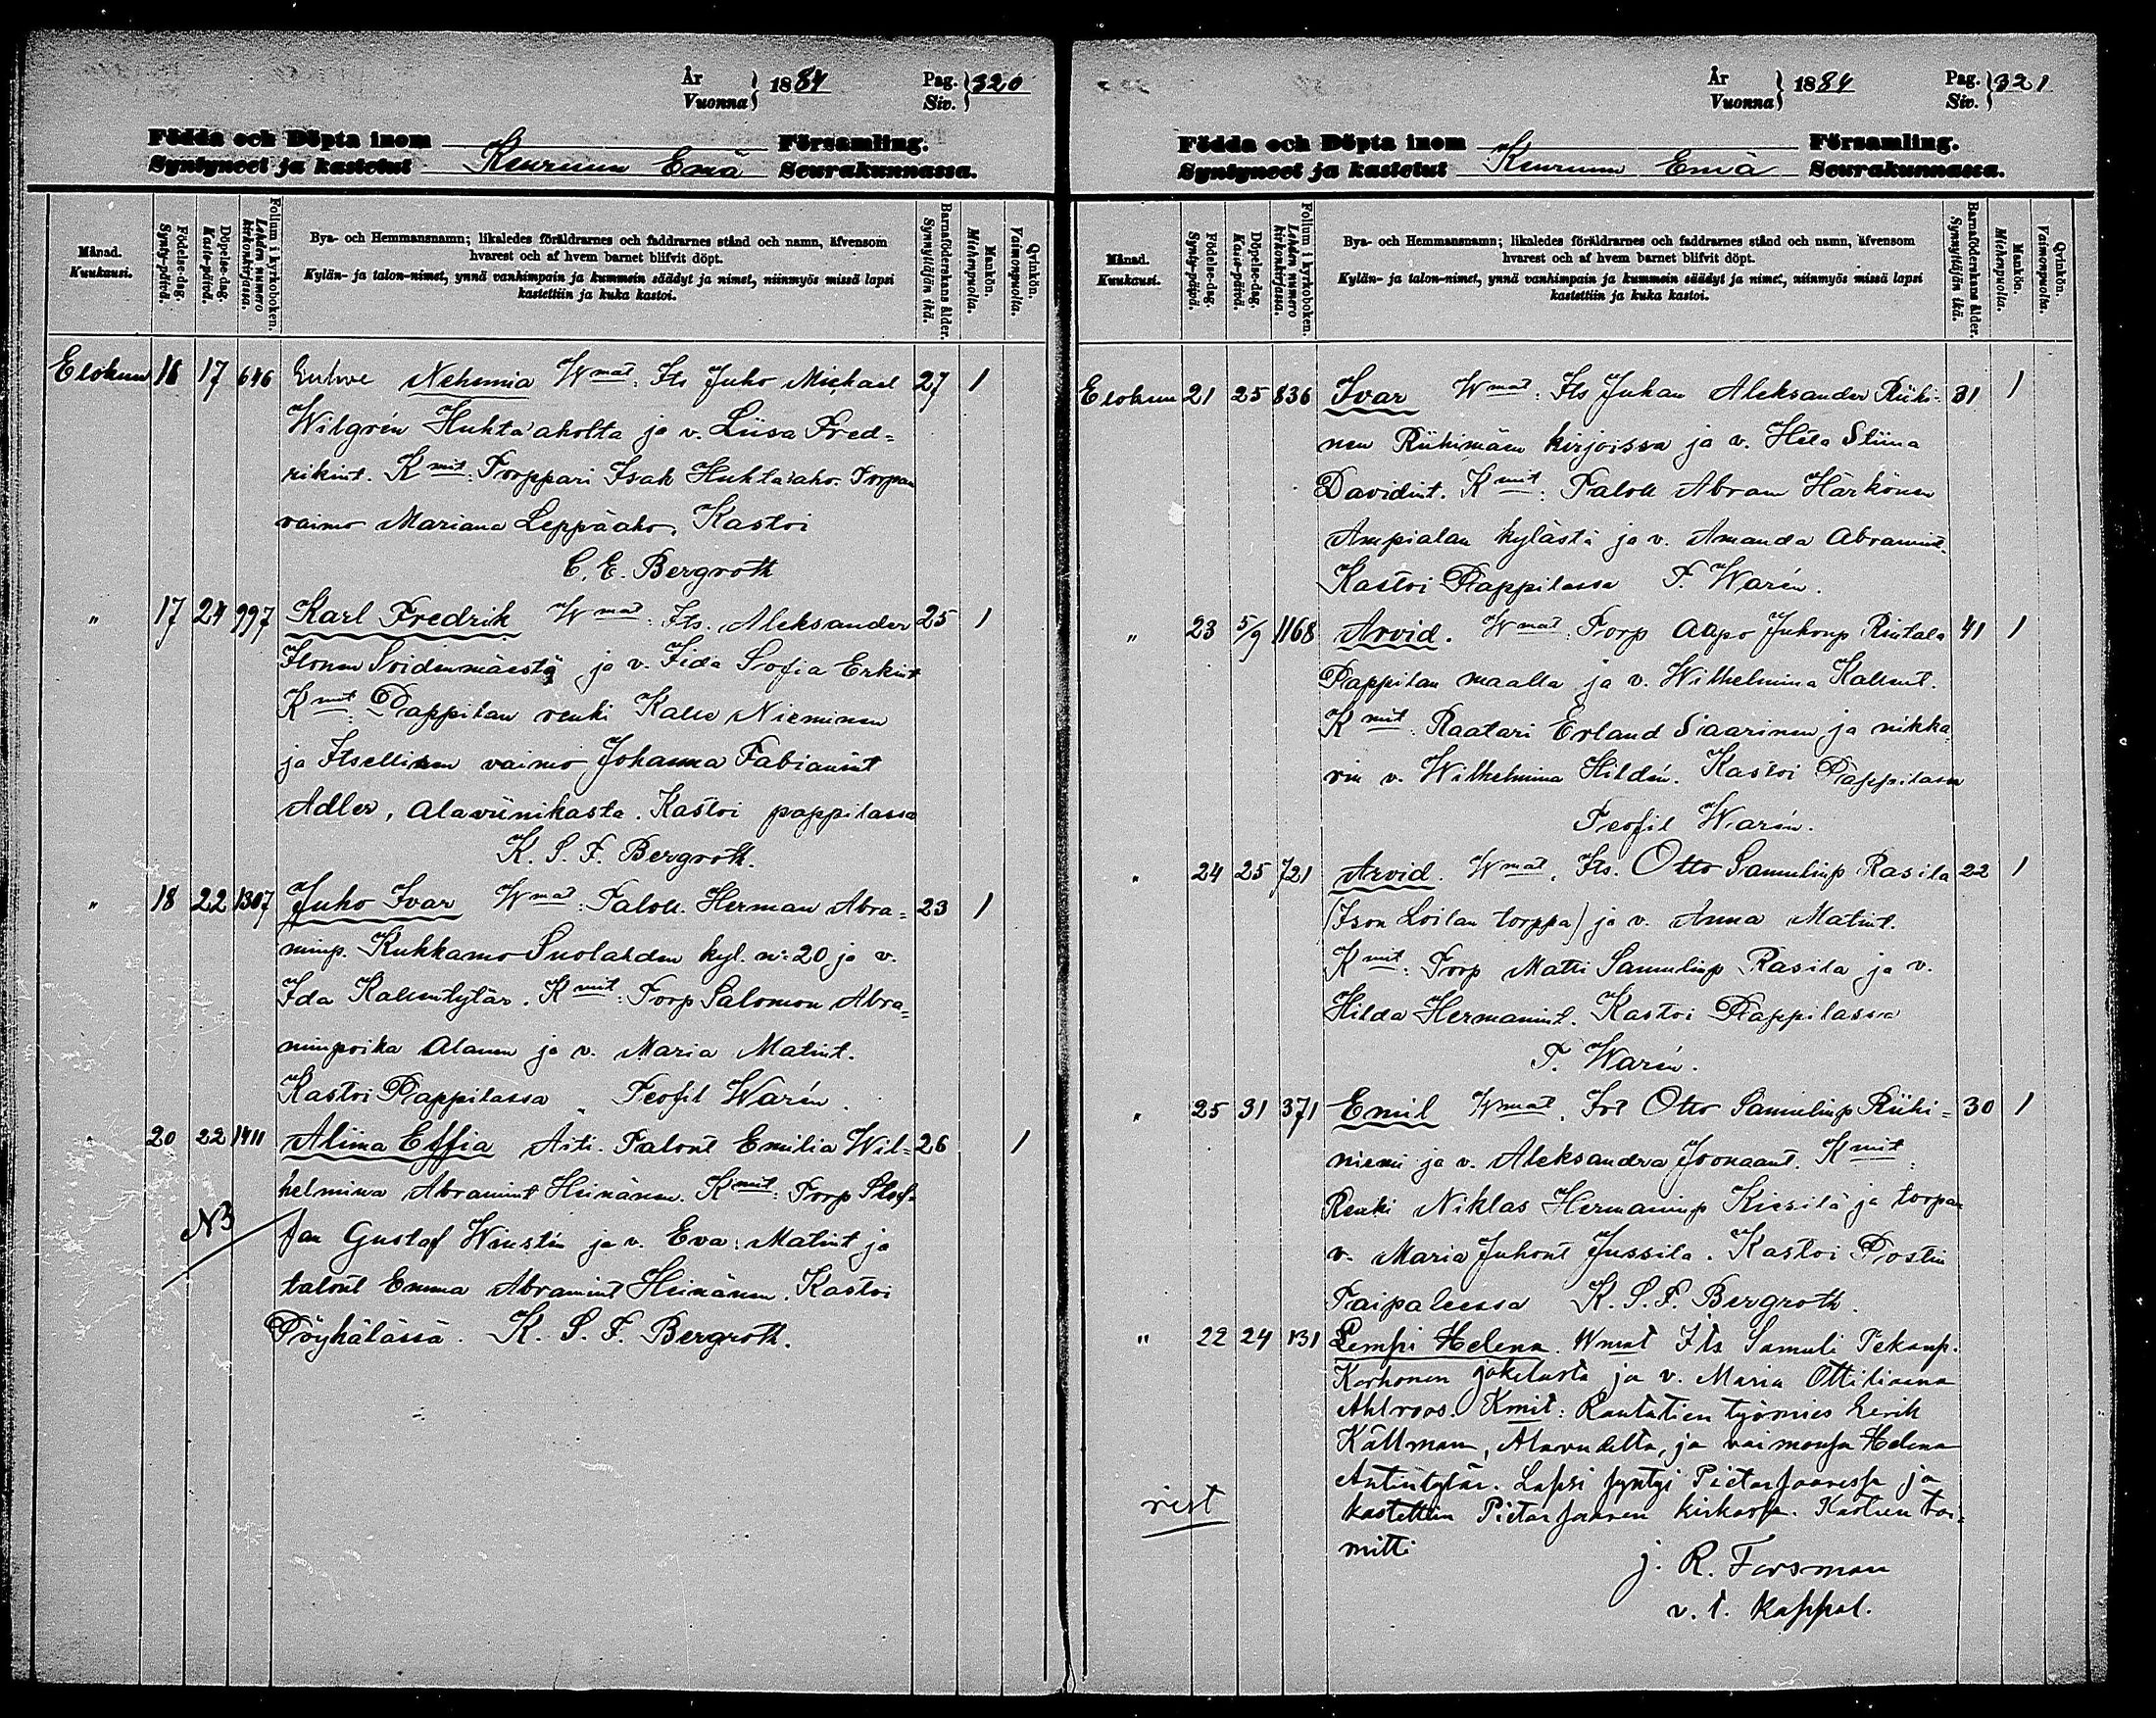 År
Vuonna } 1884 Pag.
Siv. } 320
Födda och Döpta inom Församling.
Syntyneet ja kastetut Keuruun Emä Seurakunnassa.
Månad.
Kuukausi.
Födelse-dag.
Synty-päivä.
Döpelse-dag.
Kaste-päivä.
Folium i kyrkoboken.
Lehden numero kirkonkirjassa.
Bya- och Hemmansnamn; likaledes föräldrarnes och faddrarnes stånd och namn, äfvensom
hvarest och af hvem barnet blifvit döpt.
Kylän- ja talon-nimet, ynnä vanhimpain ja kummein säädyt ja nimet, niinmyös missä lapsi
kastettiin ja kuka kastoi.
Barnaföderskans ålder.
Synnyttäjän ikä.
Mankön.
Miehenpuolia.
Qvinkön.
Vaimonpuolia.
Elokuu 16 17 646 Nehemia Wmat: Its Juho Mickael 27 1
Wilgrén Huhta'aholta ja v. Liisa Fred=
rikint. Kmit: Torppari Isak Huhta'aho. Torpan
vaimo Mariana Leppäaho, Kastoi
C. E. Bergroth
" 17 24 997 Karl Fredrik Wmat: Its. Aleksander 25 1
Ilonen Soidenmäestä ja v. Fida Sofia Erkint
Kmit: Pappilan renki Kalle Nieminen
ja Itsellisen vaimo Johanna Fabianint
Adler, Kastoi pappilassa
K. S. F. Bergroth.
" 18 22 1307 Juho Ivar Wmat: Talol. Herman Abra= 23 1
minp. Kukkamo Suolahden kyl. n:20 ja v.
Ida Kallentytär. Kmit: Torp Salomon Abra=
minpoika Alanen ja v. Maria Matint.
Kastoi Pappilassa Teofil Warén.
" 20 22 1411 Aliina Effia Äiti. Talont Emilia Wil= 26 1
helmina Abramint Heinänen. Kmit: Torp Stef=
NB fan Gustaf Winstén ja v. Eva Matint ja
talont Emma Abramint Heinänen. Kastoi
Pöyhälässä. K. S. F. Bergroth.
År
Vuonna } 1884 Pag.
Siv. } 321
Födda och Döpta inom Församling.
Syntyneet ja kastetut Keuruun Emä Seurakunnassa.
Månad.
Kuukausi.
Födelse-dag.
Synty-päivä.
Döpelse-dag.
Kaste-päivä.
Folium i kyrkoboken.
Lehden numero kirkonkirjassa.
Bya- och Hemmansnamn; likaledes föräldrarnes och faddrarnes stånd och namn, äfvensom
hvarest och af hvem barnet blifvit döpt.
Kylän- ja talon-nimet, ynnä vanhimpain ja kummein säädyt ja nimet, niinmyös missä lapsi
kastettiin ja kuka kastoi.
Barnaföderskans ålder.
Synnyttäjän ikä.
Mankön.
Miehenpuolia.
Qvinkön.
Vaimonpuolia.
Elokuu 21 25 836 Ivar Wmat: Its Juhan Aleksander Riihi- 31 1
nen Riihimäen kirjoissa ja v. Stiina
Davidint. Kmit: Taloll Abram Härkönen
Ampialan kylästä ja v. Amanda Abramint.
Kastoi Pappilassa T. Warén.
" 23 5/9 1168 Arvid. Wmat: Torp Aapo Juhonp Rintala 41 1
Pappilan maalla ja v. Wilhelmina Kallent.
Kmit: Raatari Erland Saarinen ja nikka=
rin v. Wilhelmina Hildén. Kastoi Pappilassa
Teofil Warén.
" 24 25 721 Arvid. Wmat, Its. Otto Samulinp Rasila 22 1
(Ison Loilan torppa) ja v. Anna Matint.
Kmit: Torp Matti Samulinp Rasila ja v.
Hilda Hermanint. Kastoi Pappilassa
T. Warén.
" 25 31 371 Emil Wmat, Otto Samulinp Riihi= 30 1
niemi ja v. Aleksandra Joonaant. Kmit:
Renki Niklas Hermaninp Kiesilä ja torpan
v. Maria Juhont Jussila. Kastoi Postin
Taipaleessa K. S. F. Bergroth.
" 22 24 131 Lempi Helena. Wmat Its Samuli Pekanp.
Korhonen jokelasta ja v. Maria Ottiliaana
Ahlroos. Kmit: Rautatien työmies Eerik
Källman, Alavudelta, ja vaimonsa Helena
Antintytär. Lapsi syntyi Pietarsaaressa ja
rist kastettiin Pietarsaaren kirkossa. Kasteen toi=
mitti
J. R. Forsman
v. t. kappal.